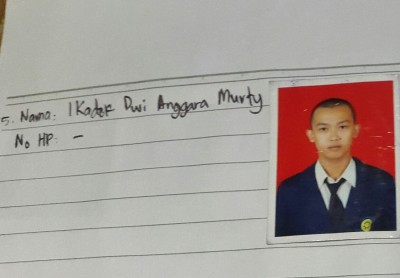 5. Nama: I Kadek Dwi Anggara Murty
No HP: -